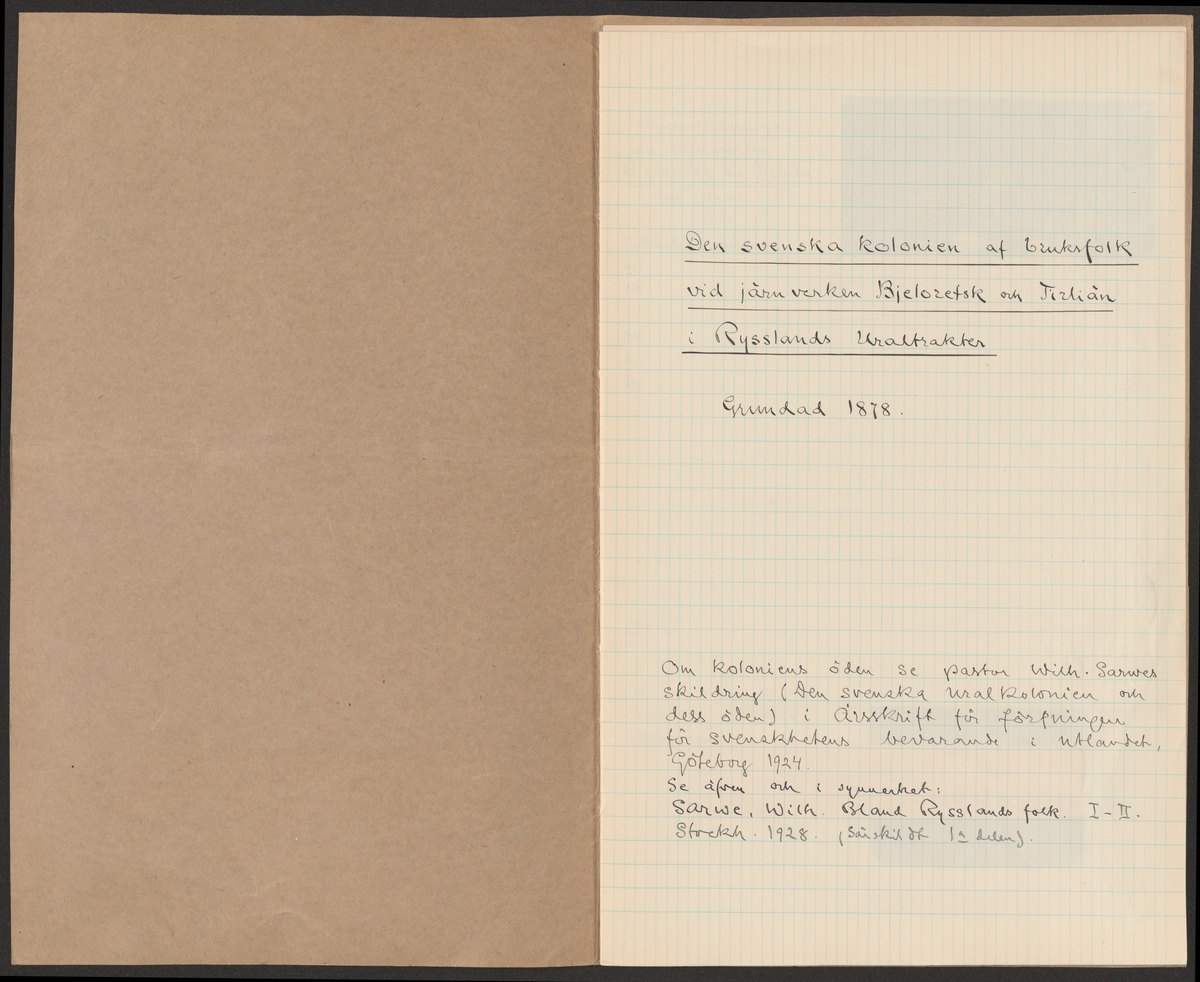 Den svenska kolonien af bruksfolk
vid järnverken Bjeloretsk och Tirliän
i Rysslands Uraltrakter
Grundad 1878.
Om koloniens öden se pastor Wilh. Sarwes
skildring (Den svenska Uralkolonien och
dess öden) i Årsskrift för förgningen
för svenskhetens bevarande i utlandet,
Göteborg 1924.
Se äfven och i synnerhet:
Sarwe, Wilh. Bland Rysslands folk. I-II.
Stockh. 1928. (Särskildt 1a delen).